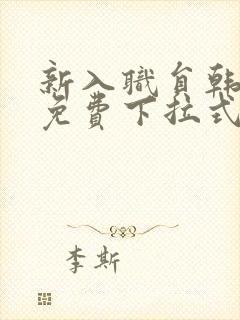 新入職員韩
免費下拉式
李斯